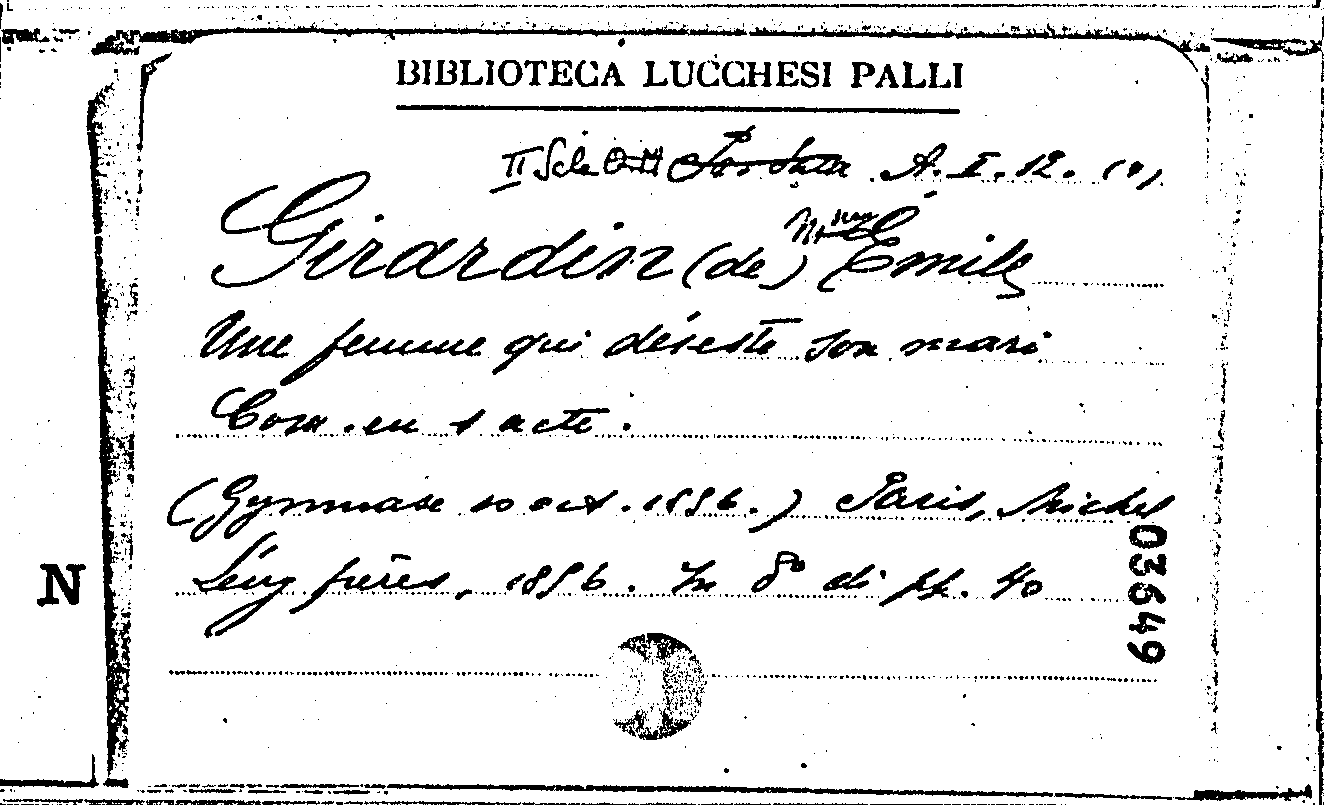 BIBLIOTECA LUCCHESI PALLI
II Sala A. I. 12. (9)
Girardin (de) Mme Émile
Une femme qui déteste son mari
Com. en 1 acte.
(Gymnase 10 oct. 1856.) Paris, Michel
Lévy frères, 1856. In 8° di pp. 40
03649
N